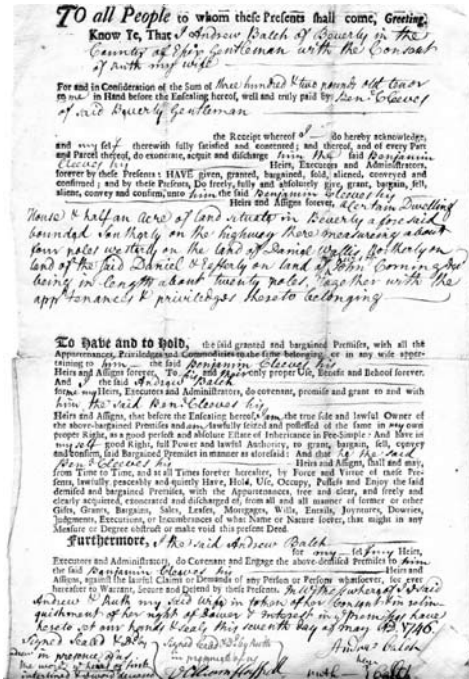 TO all People to whom these Presents shall come, Greeting,
Know Ye, That I Andrew Balch of Beverly in the
County of Essex Gentleman with the Consent
of Ruth my wife
For and in Consideration of the Sum of three hundred & two pounds old tenor
to me in Hand before the Ensealing hereof, well and truly paid by Benj.ª Cleeves
of said Beverly Gentleman
the Receipt whereof I do hereby acknowledge,
and my self therewith fully satisfied and contented; and thereof, and of every Part
and Parcel thereof, do exonerate, acquit and discharge him the said Benjamin
Cleeves his Heirs, Executors and Administrators,
forever by these Presents: HAVE given, granted, bargained, sold, aliened, conveyed and
confirmed; and by these Presents, Do freely, fully and absolutely give, grant, bargain, sell,
aliene, convey and confirm, unto him, the said Benjamin Cleeves his
Heirs and Assigns forever, A Certain Dwelling
House & half an Acre of land situate in Beverly aforesaid
bounded Southerly on the highway there measureing about
four poles westerly on the land of Daniel Wallis, Northerly on
land of the said Daniel & Easterly on land of John Corning
being in length about twenty poles. Together with the
appurtenances & priviledges thereto belonging
To Have and to Hold, the said granted and bargained Premises, with all the
Appurtenances, Priviledges and Commodities to the same belonging, or in any wise apper-
taining to him the said Benjamin Cleeves his
Heirs and Assigns forever, To his and their only proper Use, Benefit and Behoof forever.
And I the said Andrew Balch
for me my Heirs, Executors and Administrators, do covenant, promise and grant to and with
him the said Benj.ª Cleeves his
Heirs and Assigns, that before the Ensealing hereof, I am the true sole and lawful Owner of
the above-bargained Premises and am lawfully seized and possessed of the same in my own
proper Right, as a good perfect and absolute Estate of Inheritance in Fee-Simple: And have in
my self good Right, full Power and lawful Authority, to grant, bargain, sell, convey
and confirm, said Bargained Premises in manner as aforesaid: And that he the said
Benj.ª Cleeves his Heirs and Assigns, shall and may,
from Time to Time, and at all Times forever hereafter, by Force and Virtue of these Pre-
sents, lawfully, peaceably and quietly Have, Hold, Use, Occupy, Possess and Enjoy the said
demised and bargained Premises, with the Appurtenances, free and clear, and freely and
clearly acquitted, exonerated and discharged of, from all and all manner of former or other
Gifts, Grants, Bargains, Sales, Leases, Mortgages, Wills, Entails, Joyntures, Dowries,
Judgments, Executions, or Incumbrances of what Name or Nature soever, that might in any
Measure or Degree obstruct or make void this present Deed.
Furthermore, I the said Andrew Balch
for my self my Heirs,
Executors and Administrators, do Covenant and Engage the above-demised Premises to him
the said Benjamin Cleeves his Heirs and
Assigns, against the lawful Claims or Demands of any Person or Persons whatsoever, for ever
hereafter to Warrant, Secure and Defend by these Presents. In Witness whereof I the said
Andrew & Ruth my said Wife in token of her Consent & relin-
quishment of her right of Dower & Interest in the Premises have
hereto set our hands & seals this seventh day of May 1746.
Signed Sealed & Signed Sealed & by Ruth Andrew Balch
in presence of us in presence of us her
the words Ruth Balch